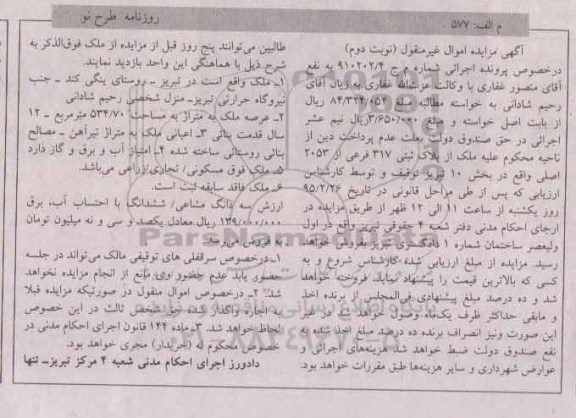 روزنامه طرح نو
م الف: ۵۷۷
آگهی مزایده اموال غیرمنقول (نوبت دوم)
درخصوص پرونده اجرائی شماره م ج ۹۱۰۲۰۲/۴ به نفع
آقای منصور غفاری با وکالت عزت‌الله غفاری به زیان آقای
رحیم شادانی به خواسته مطالبه مبلغ ۸۴/۳۲۴/۰۵۲ ریال
از بابت اصل خواسته و مبلغ ۳/۶۵۰/۰۰۰ ریال نیم عشر
اجرائی در حق صندوق دولت بعلت عدم پرداخت دین از
ناحیه محکوم علیه ملک از پلاک ثبتی ۳۱۷ فرعی از ۲۰۵۳
اصلی واقع در بخش ۱۰ تبریز توقیف و توسط کارشناس
ارزیابی که پس از طی مراحل قانونی در تاریخ ۹۵/۲/۲۶
روز یکشنبه از ساعت ۱۱ الی ۱۲ ظهر از طریق مزایده در
اجرای احکام مدنی دفتر شعبه ۴ حقوقی تبریز واقع در اول
ولیعصر ساختمان شماره ۱ دادگستری تبریز بفروش خواهد
رسید. مزایده از مبلغ ارزیابی شده کارشناس شروع و به
کسی که بالاترین قیمت را پیشنهاد نماید، فروخته خواهد
شد و ده درصد مبلغ پیشنهادی فی‌المجلس از برنده اخذ
و مابقی حداکثر ظرف یک‌ماه وصول خواهد شد در غیر
این صورت ونیز انصراف برنده ده درصد مبلغ اخذ شده به
نفع صندوق دولت ضبط خواهد شد هزینه‌های اجرائی و
عوارض شهرداری و سایر هزینه‌ها طبق مقررات خواهد بود.
طالبین می‌توانند پنج روز قبل از مزایده از ملک فوق‌الذکر به
شرح ذیل با هماهنگی این واحد بازدید نمایند.
۱ـ ملک واقع است در تبریز ـ روستای ینگی کند ـ جنب
نیروگاه حرارتی تبریزـ منزل شخصی رحیم شادانی
۲ـ عرصه ملک به متراژ به مساحت ۵۳۴/۷۰ مترمربع ـ ۱۲
سال قدمت بنائی ۳ـ اعیانی ملک به متراژ تیرآهن ـ مصالح
بنائی روستائی ساخته شده ۴ـ امتیاز آب و برق و گاز دارد
۵ـ ملک فوق مسکونی/ تجاری/زراعی می‌باشد.
۶ـ ملک فاقد سابقه ثبت است.
ارزش سه دانگ مشاعی/ ششدانگ با احتساب آب، برق
۱۳۹/۰۰۰/۰۰۰ ریال معادل یکصد و سی و نه میلیون تومان
به فروش می‌رسد
۱ـ درخصوص سرقفلی های توقیفی مالک می‌تواند در جلسه
حضور یابد عدم حضور وی مانع از انجام مزایده نخواهد
شد. ۲ـ درخصوص اموال منقول در صورتیکه مزایده قبلا
به اجاره واگذار شده حق شخص ثالث در این خصوص
لحاظ خواهد شد. ۳ـ ماده ۱۴۴ قانون اجرای احکام مدنی در
خصوص محکوم له (خریدار) مجری خواهد بود.
دادورز اجرای احکام مدنی شعبه ۴ مرکز تبریزـ تنها
ParsNamadData